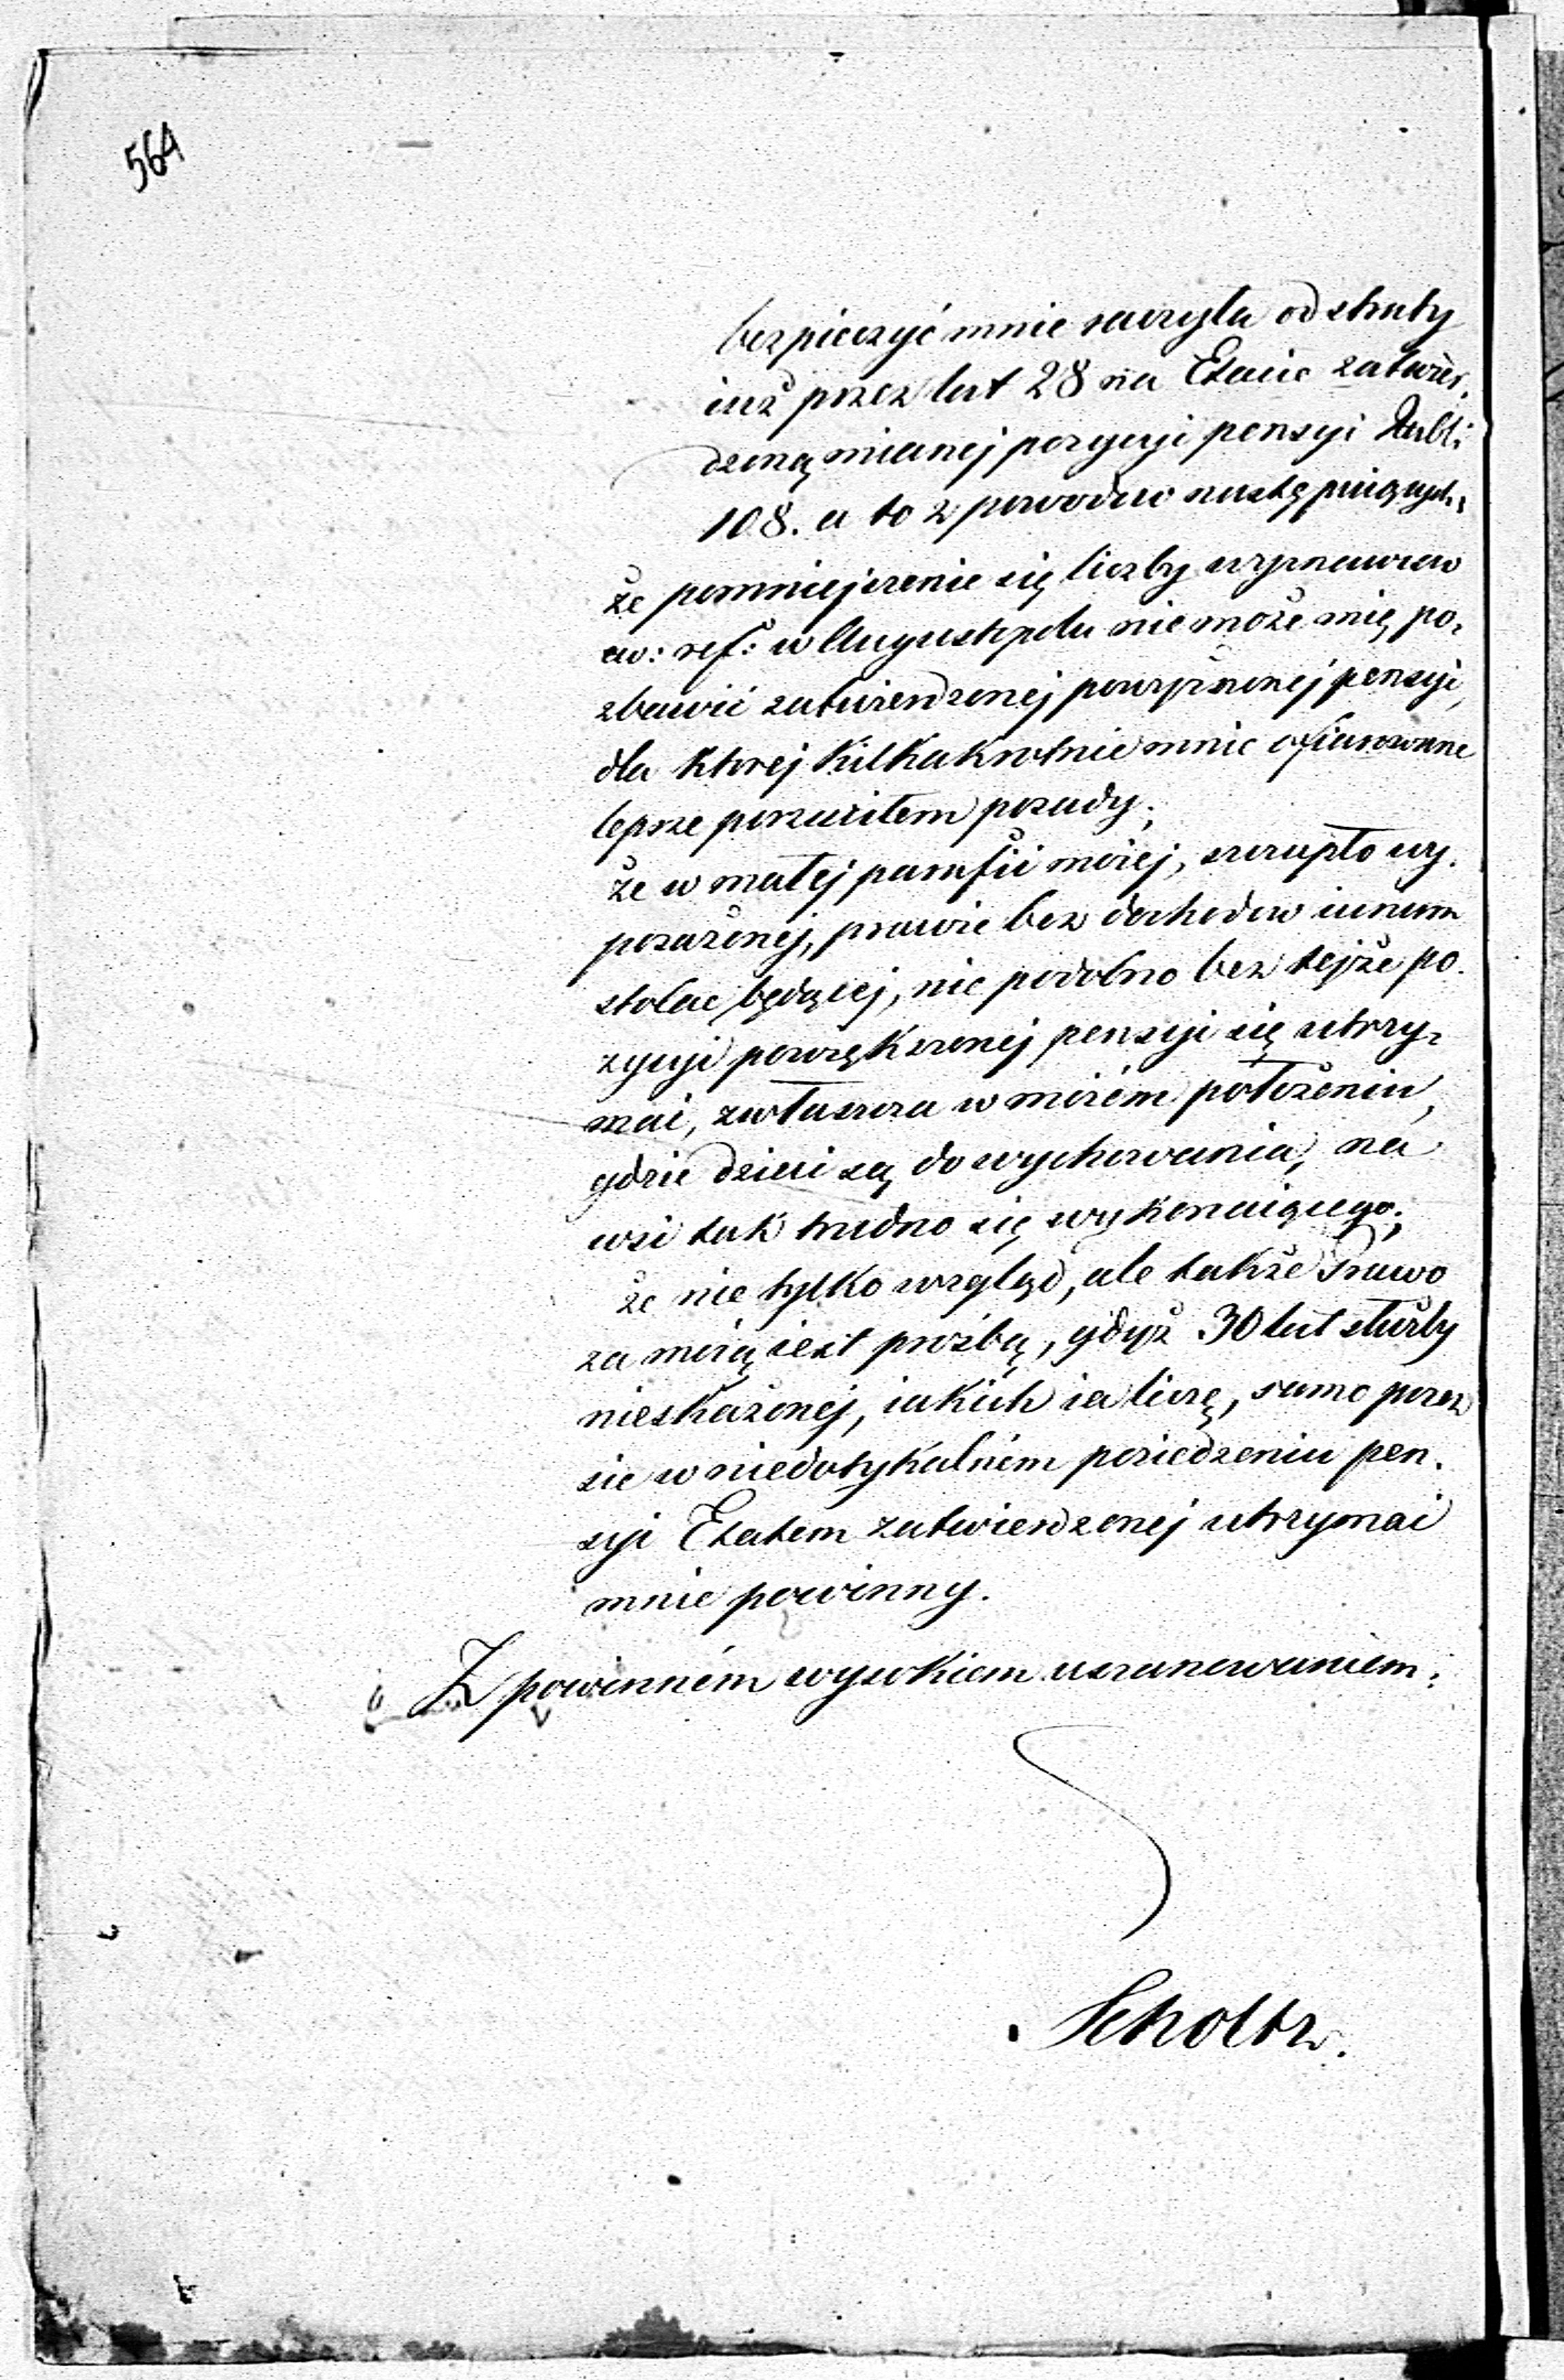 564
bezpieczyć mnie raczyła od straty
iuż przez lat 28 na Etacie zatwier,
dzoną mianej pozycyi pensyi Rubl:
108. a to z powodów następuiących:
że pomniejszenie się liczby wyznawców
ew: ref: w Augustpolu nie może mię po,
zbawić zatwierdzonej powyższonej pensyi,
dla ktorej kilkakrotnie mnie ofiarowane
lepsze porzuciłem posady;
że w małej parafii moiej, szczupło wy.
posażonej, prawie bez dochodów iurium
stolae będącej, nie podobno bez tejże po.
zycyi powiększonej pensyi się utrzy,
mać, zwłaszcza w moiém położeniu,
gdzie dzieci są do wychowania, na
wsi tak trudno się wykonaiącego;
że nie tylko wzgląd, ale także Prawo
za moią iest prośbą, gdyż 30 lat służby
nieskażonej, iakich ia liczę, samo przez
się w niedotykalném posiedzeniu pen.
syi Etatem zatwierdzonej utrzymać
mnie powinny.
Z powinném wysokiem uszanowaniem:
Scholtz.